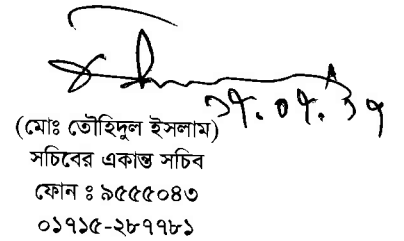 (মোঃ তৌহিদুল ইসলাম)
সচিবের একান্ত সচিব
ফোন ঃ ৯৫৫৫০৪৩
০১৭১৫-২৮৭৭৮১